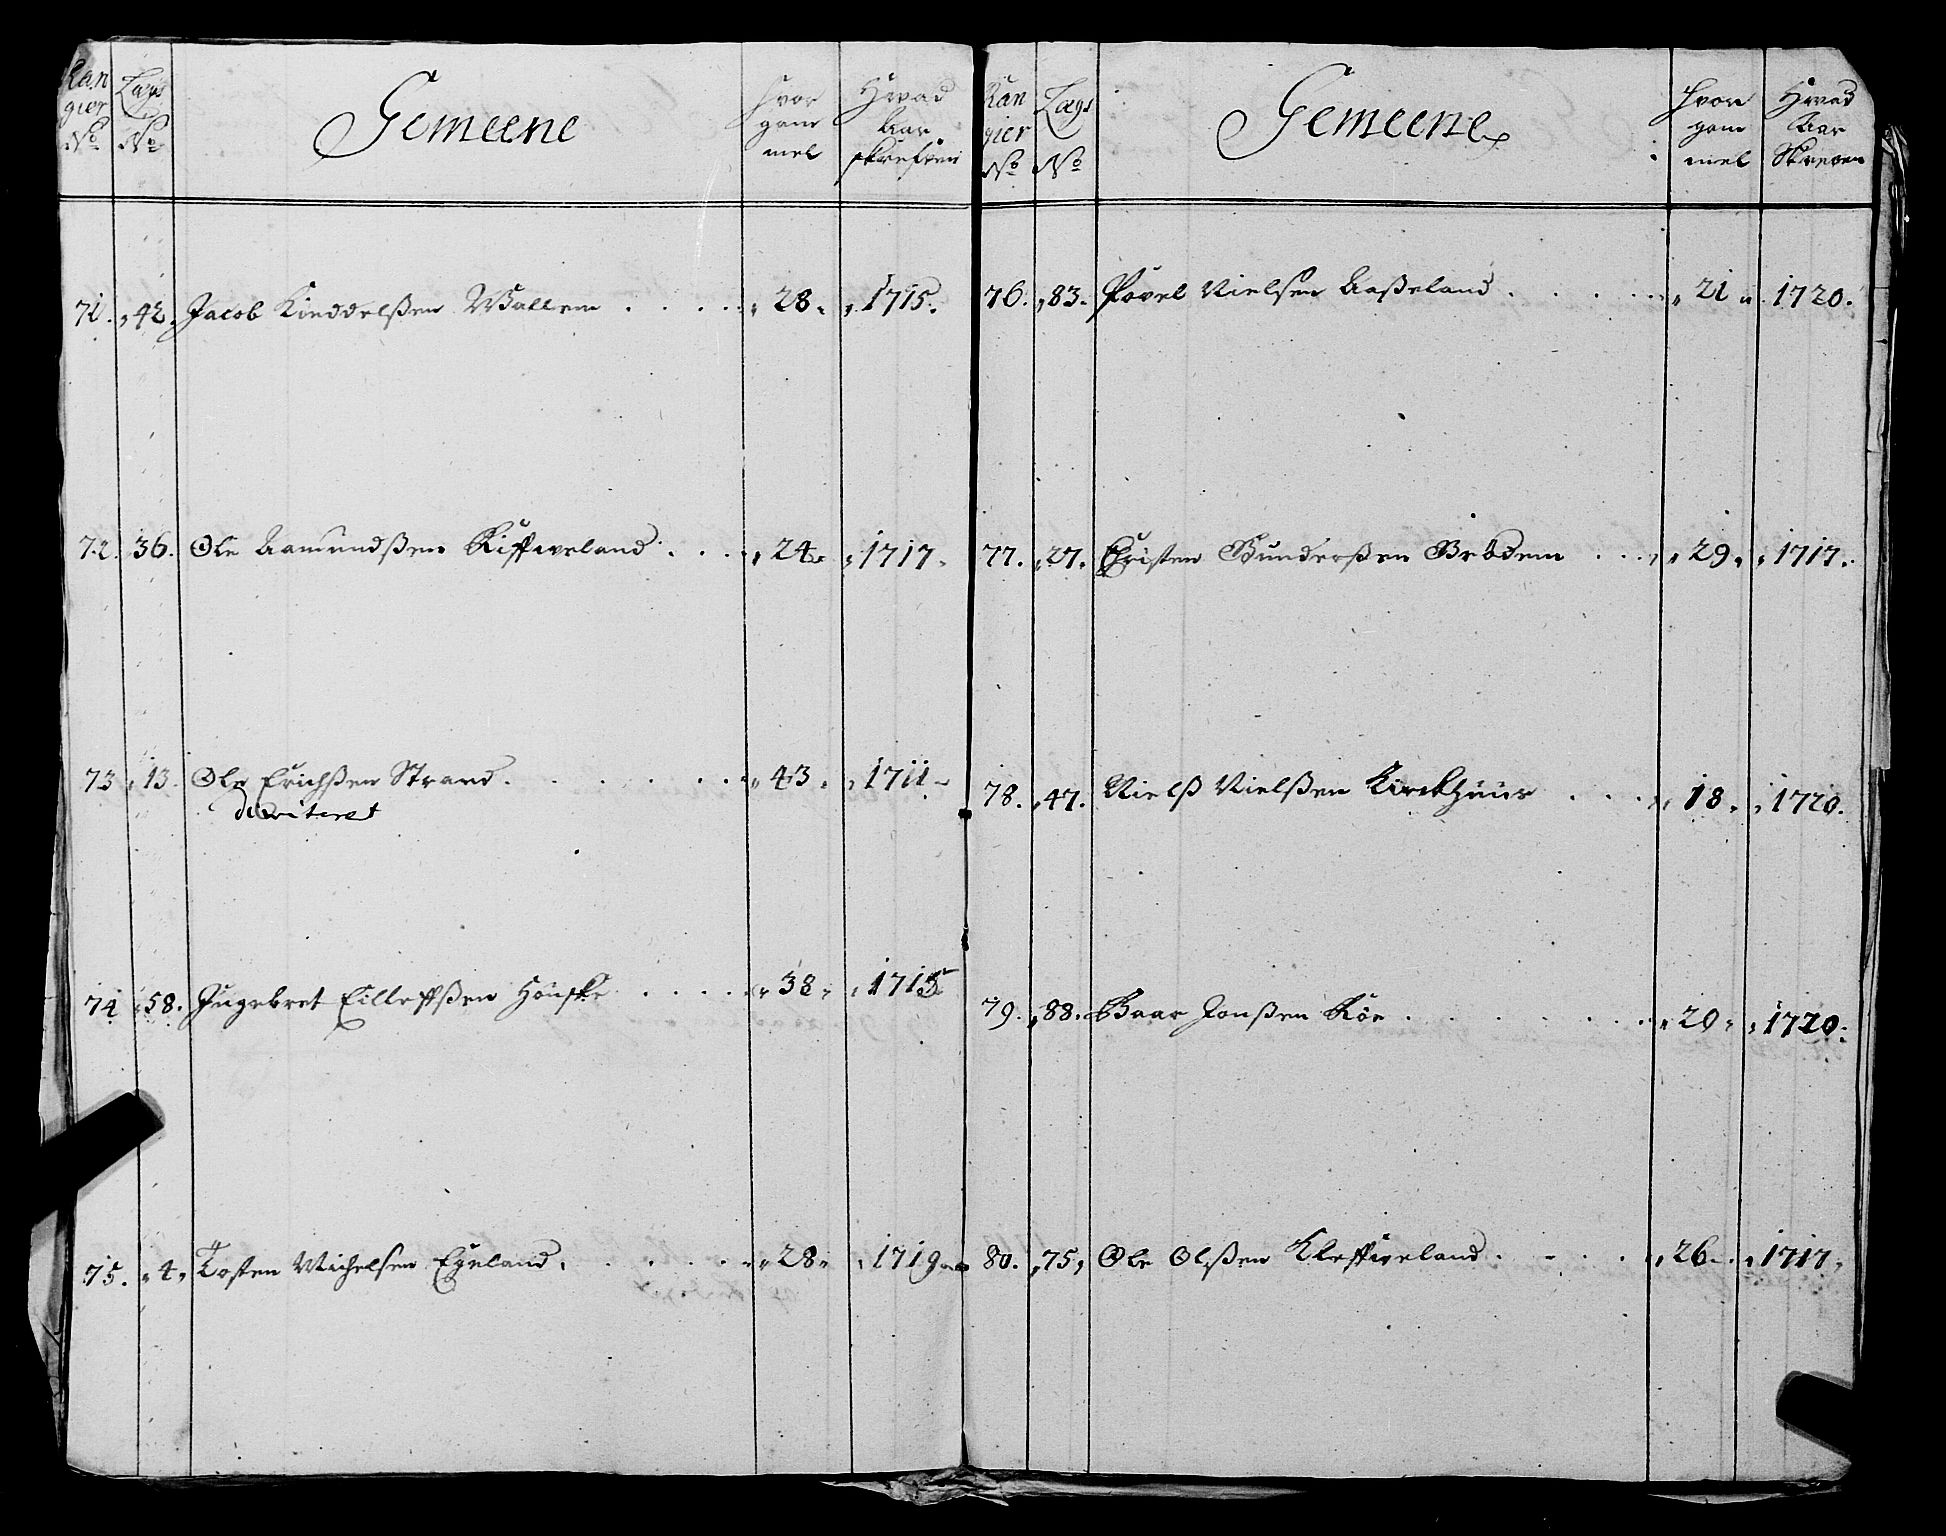 Ran
gier
No
Lægs
No
Gemeene
Hvor
gam
mel
Hvad
Aar
skrefven
71. 42. Jacob Kieddelßen Wallem 28. 1715.
72. 36. Ole Aamundßen Kiffweland 24 1717.
73 13. Ole Erichßen Strand 43 1711
74 58. Ingebret Eilleffßen Hönske 38 1715
75. 4. Tosten Michelsen Egeland 28 1719
Ran
gier
No
Lægs
No
Gemeene
Hvor
gam
mel
Hvad
Aar
Skreven
76. 83. Povel Nielsen Aaßeland 21 1720.
77. 27. Christen Gunderßen Brödem 29 1717.
78. 47. Nielß Nielßen Kirckhuus 18 1720.
79. 88. Baar Jonßen Röe 20 1720.
80. 75. Ole Olßen Kleffweland 26 1717.